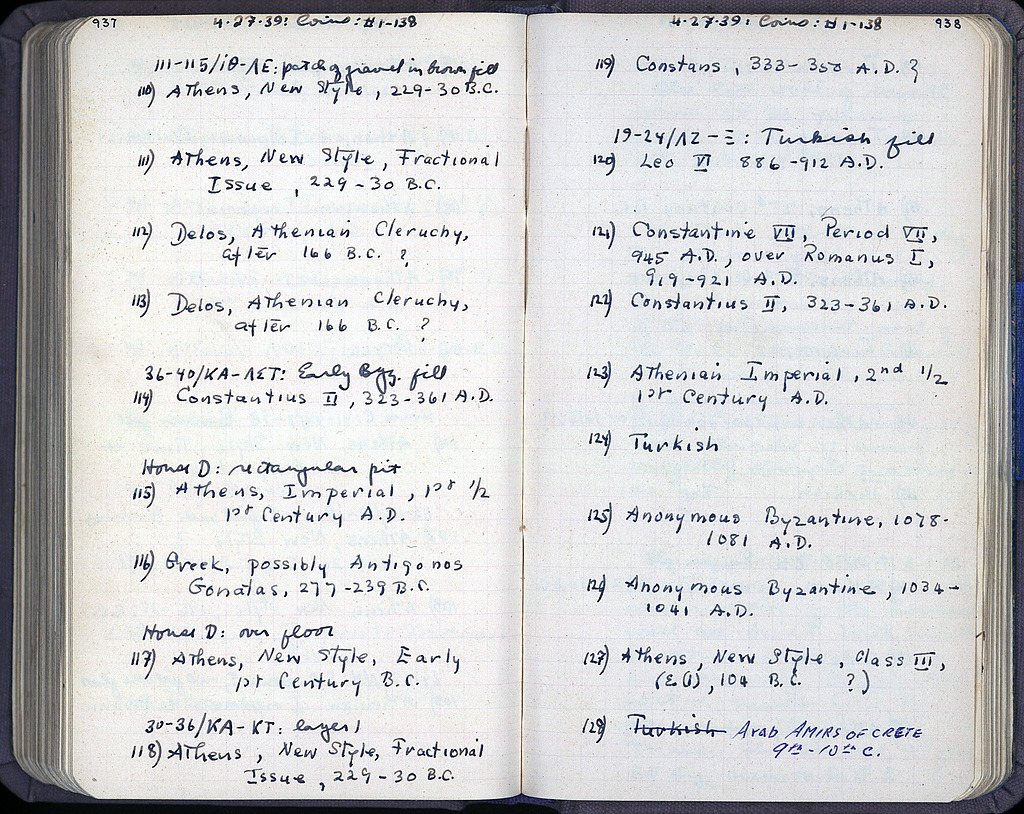 937
4·27·39: Coins: #1-138
111-115/ΙΘ-ΛΕ: patch of gravel in brown fill
110) Athens, New Style, 229-30 B.C.
111) Athens, New Style, Fractional
Issue, 229-30 B.C.
112) Delos, Athenian Cleruchy,
after 166 B.C. ?
113) Delos, Athenian Cleruchy,
after 166 B.C. ?
36-40/ΚΑ-ΛΣΤ: Early Byz. fill
114) Constantius II, 323-361 A.D.
House D: rectangular pit
115) Athens, Imperial, 1st 1/2
1st Century A.D.
116) Greek, possibly Antigonos
Gonatas, 277-239 B.C.
House D: over floor
117) Athens, New Style, Early
1st Century B.C.
30-36/ΚΑ-ΚΓ: layer 1
118) Athens, New Style, Fractional
Issue, 229-30 B.C.
4·27·39: Coins: #1-138
938
119) Constans, 333-350 A.D. ?
19-24/ΛΖ-Ξ: Turkish fill
120) Leo VI 886-912 A.D.
121) Constantine VII, Period VII,
945 A.D., over Romanus I,
919-921 A.D.
122) Constantius II, 323-361 A.D.
123) Athenian Imperial, 2nd 1/2
1st Century A.D.
124) Turkish
125) Anonymous Byzantine, 1078-
1081 A.D.
126) Anonymous Byzantine, 1034-
1041 A.D.
127) Athens, New Style, Class III,
104 B.C. ?)
128) Turkish Arab AMIRS OF CRETE
9th-10th C.